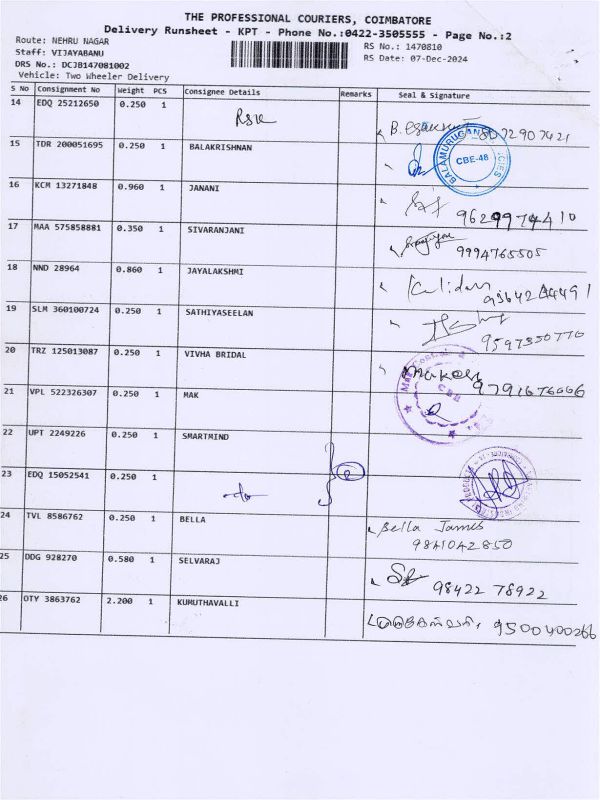 THE PROFESSIONAL COURIERS, COIMBATORE
Delivery Runsheet - KPT - Phone No.:0422-3505555 - Page No.:2
Route: NEHRU NAGAR
RS No.: 1470810
Staff: VIJAYABANU
RS Date: 07-Dec-2024
DRS No.: DCJB147081002
Vehicle: Two Wheeler Delivery
S No Consignment No Weight PCS Consignee Details Remarks Seal & Signature
14 EDQ 25212650 0.250 1
8072907421
15 TDR 200051695 0.250 1 BALAKRISHNAN
BALAMURUGAN AGENCIES CBE-48
16 KCM 13271848 0.960 1 JANANI
9629974410
17 MAA 575858881 0.350 1 SIVARANJANI
9994765505
18 NND 28964 0.860 1 JAYALAKSHMI
19 SLM 360100724 0.250 1 SATHIYASEELAN
20 TRZ 125013087 0.250 1 VIVHA BRIDAL
9791676666
21 VPL 522326307 0.250 1 MAK
22 UPT 2249226 0.250 1 SMARTMIND
23 EDQ 15052541 0.250 1
24 TVL 8586762 0.250 1 BELLA Bella James
9841042850
25 DDG 928270 0.580 1 SELVARAJ
98422 78922
26 OTY 3863762 2.200 1 KUMUTHAVALLI
9500400266